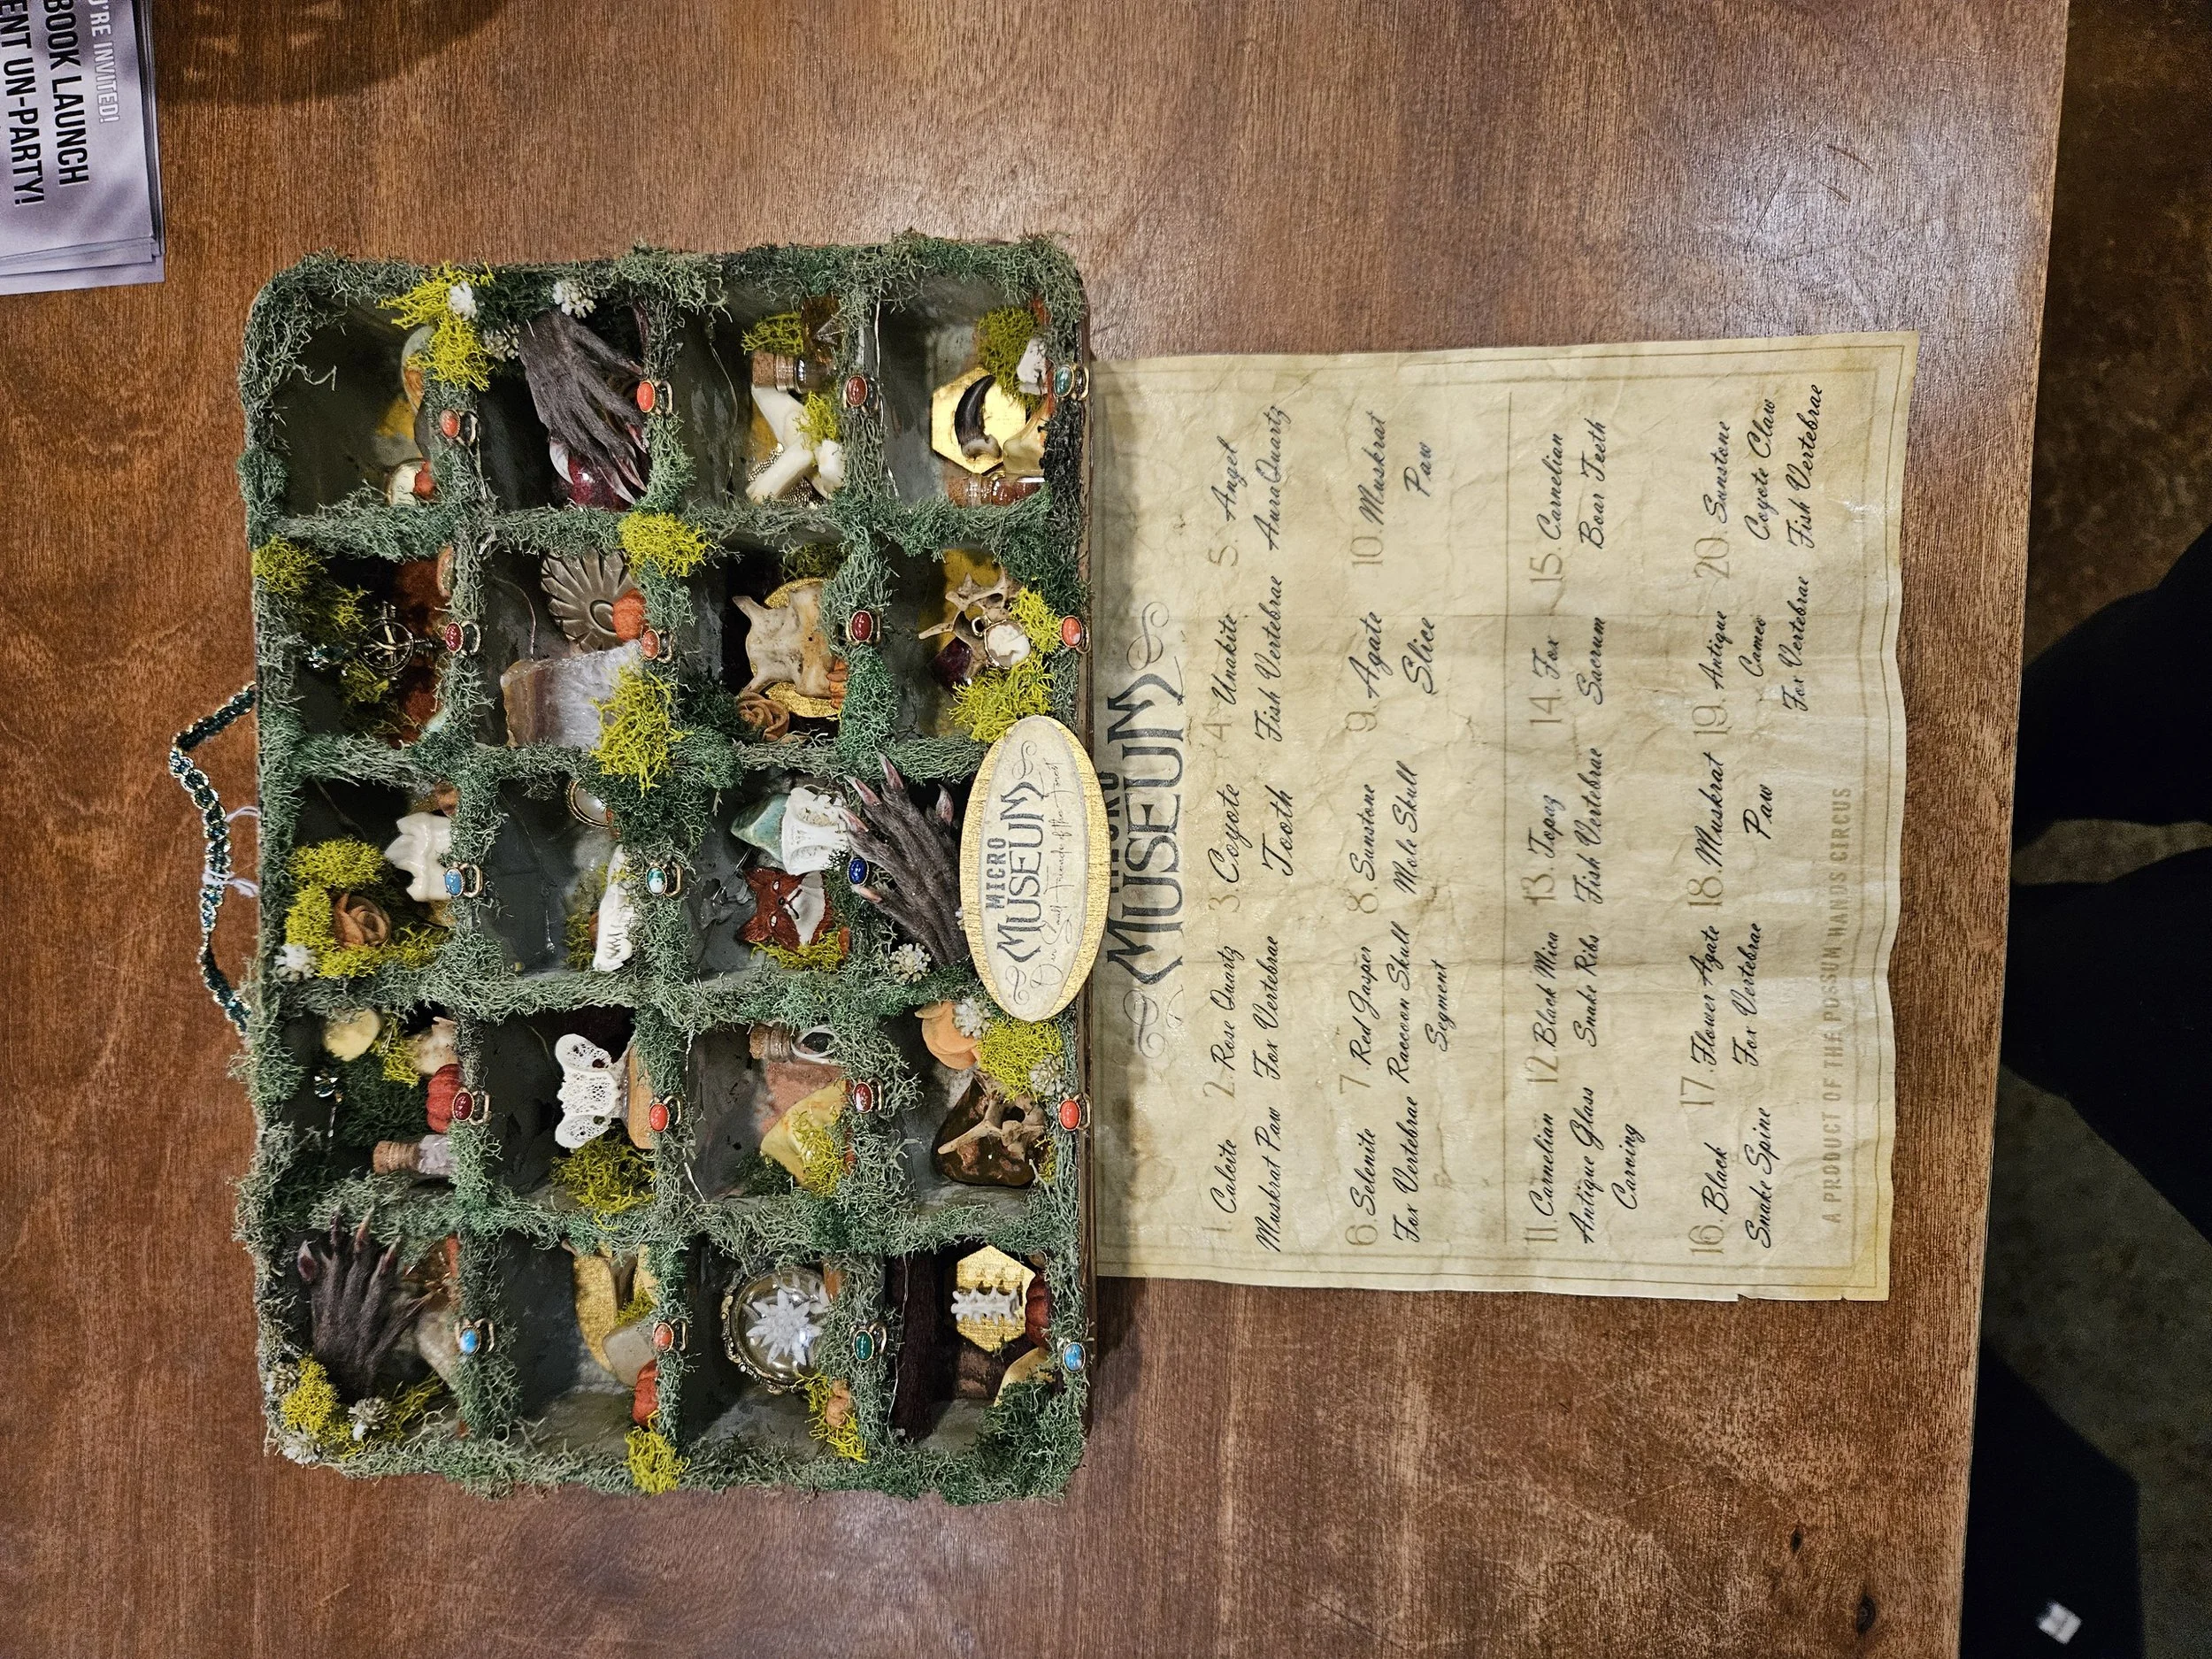 'RE INVITED!
BOOK LAUNCH
ENT UN-PARTY!
MICRO
MUSEUM
Small Friends of the Forest
MICRO
MUSEUM
1. Calcite
Muskrat Paw
2. Rose Quartz
Fox Vertebrae
3. Coyote
Tooth
4. Unakite
Fish Vertebrae
5. Angel
AuraQuartz
6. Selenite
Fox Vertebrae
7. Red Jasper
Raccoon Skull
Segment
8. Sunstone
Mole Skull
9. Agate
Slice
10. Muskrat
Paw
11. Carnelian
Antique Glass
Carving
12. Black Mica
Snake Ribs
13. Topaz
Fish Vertebrae
14. Fox
Sacrum
15. Carnelian
Boar Teeth
16. Black
Snake Spine
17. Flower Agate
Fox Vertebrae
18. Muskrat
Paw
19. Antique
Cameo
Fox Vertebrae
20. Sunstone
Coyote Claw
Fish Vertebrae
A PRODUCT OF THE POSSUM HANDS CIRCUS